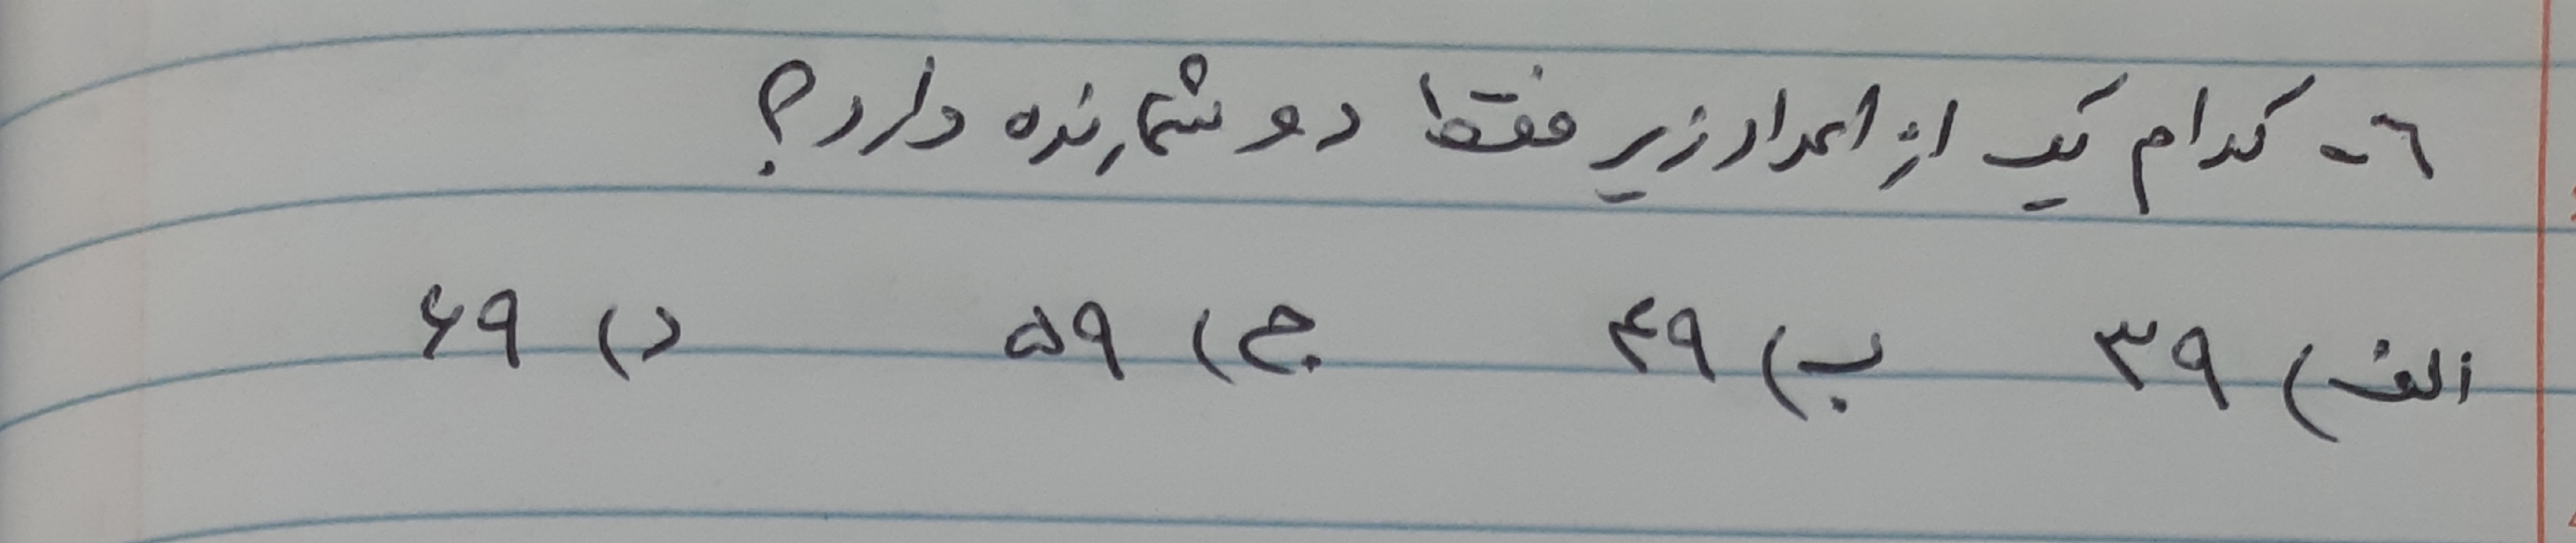 ۶- کدام یک از اعداد زیر فقط دو شمارنده دارد؟
الف) ۳۹ ب) ۴۹ ج) ۵۹ د) ۶۹